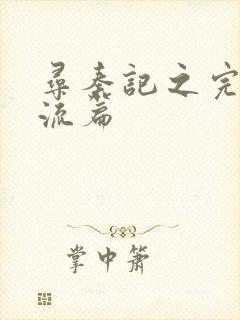 尋秦記之完
流篇
掌中簫